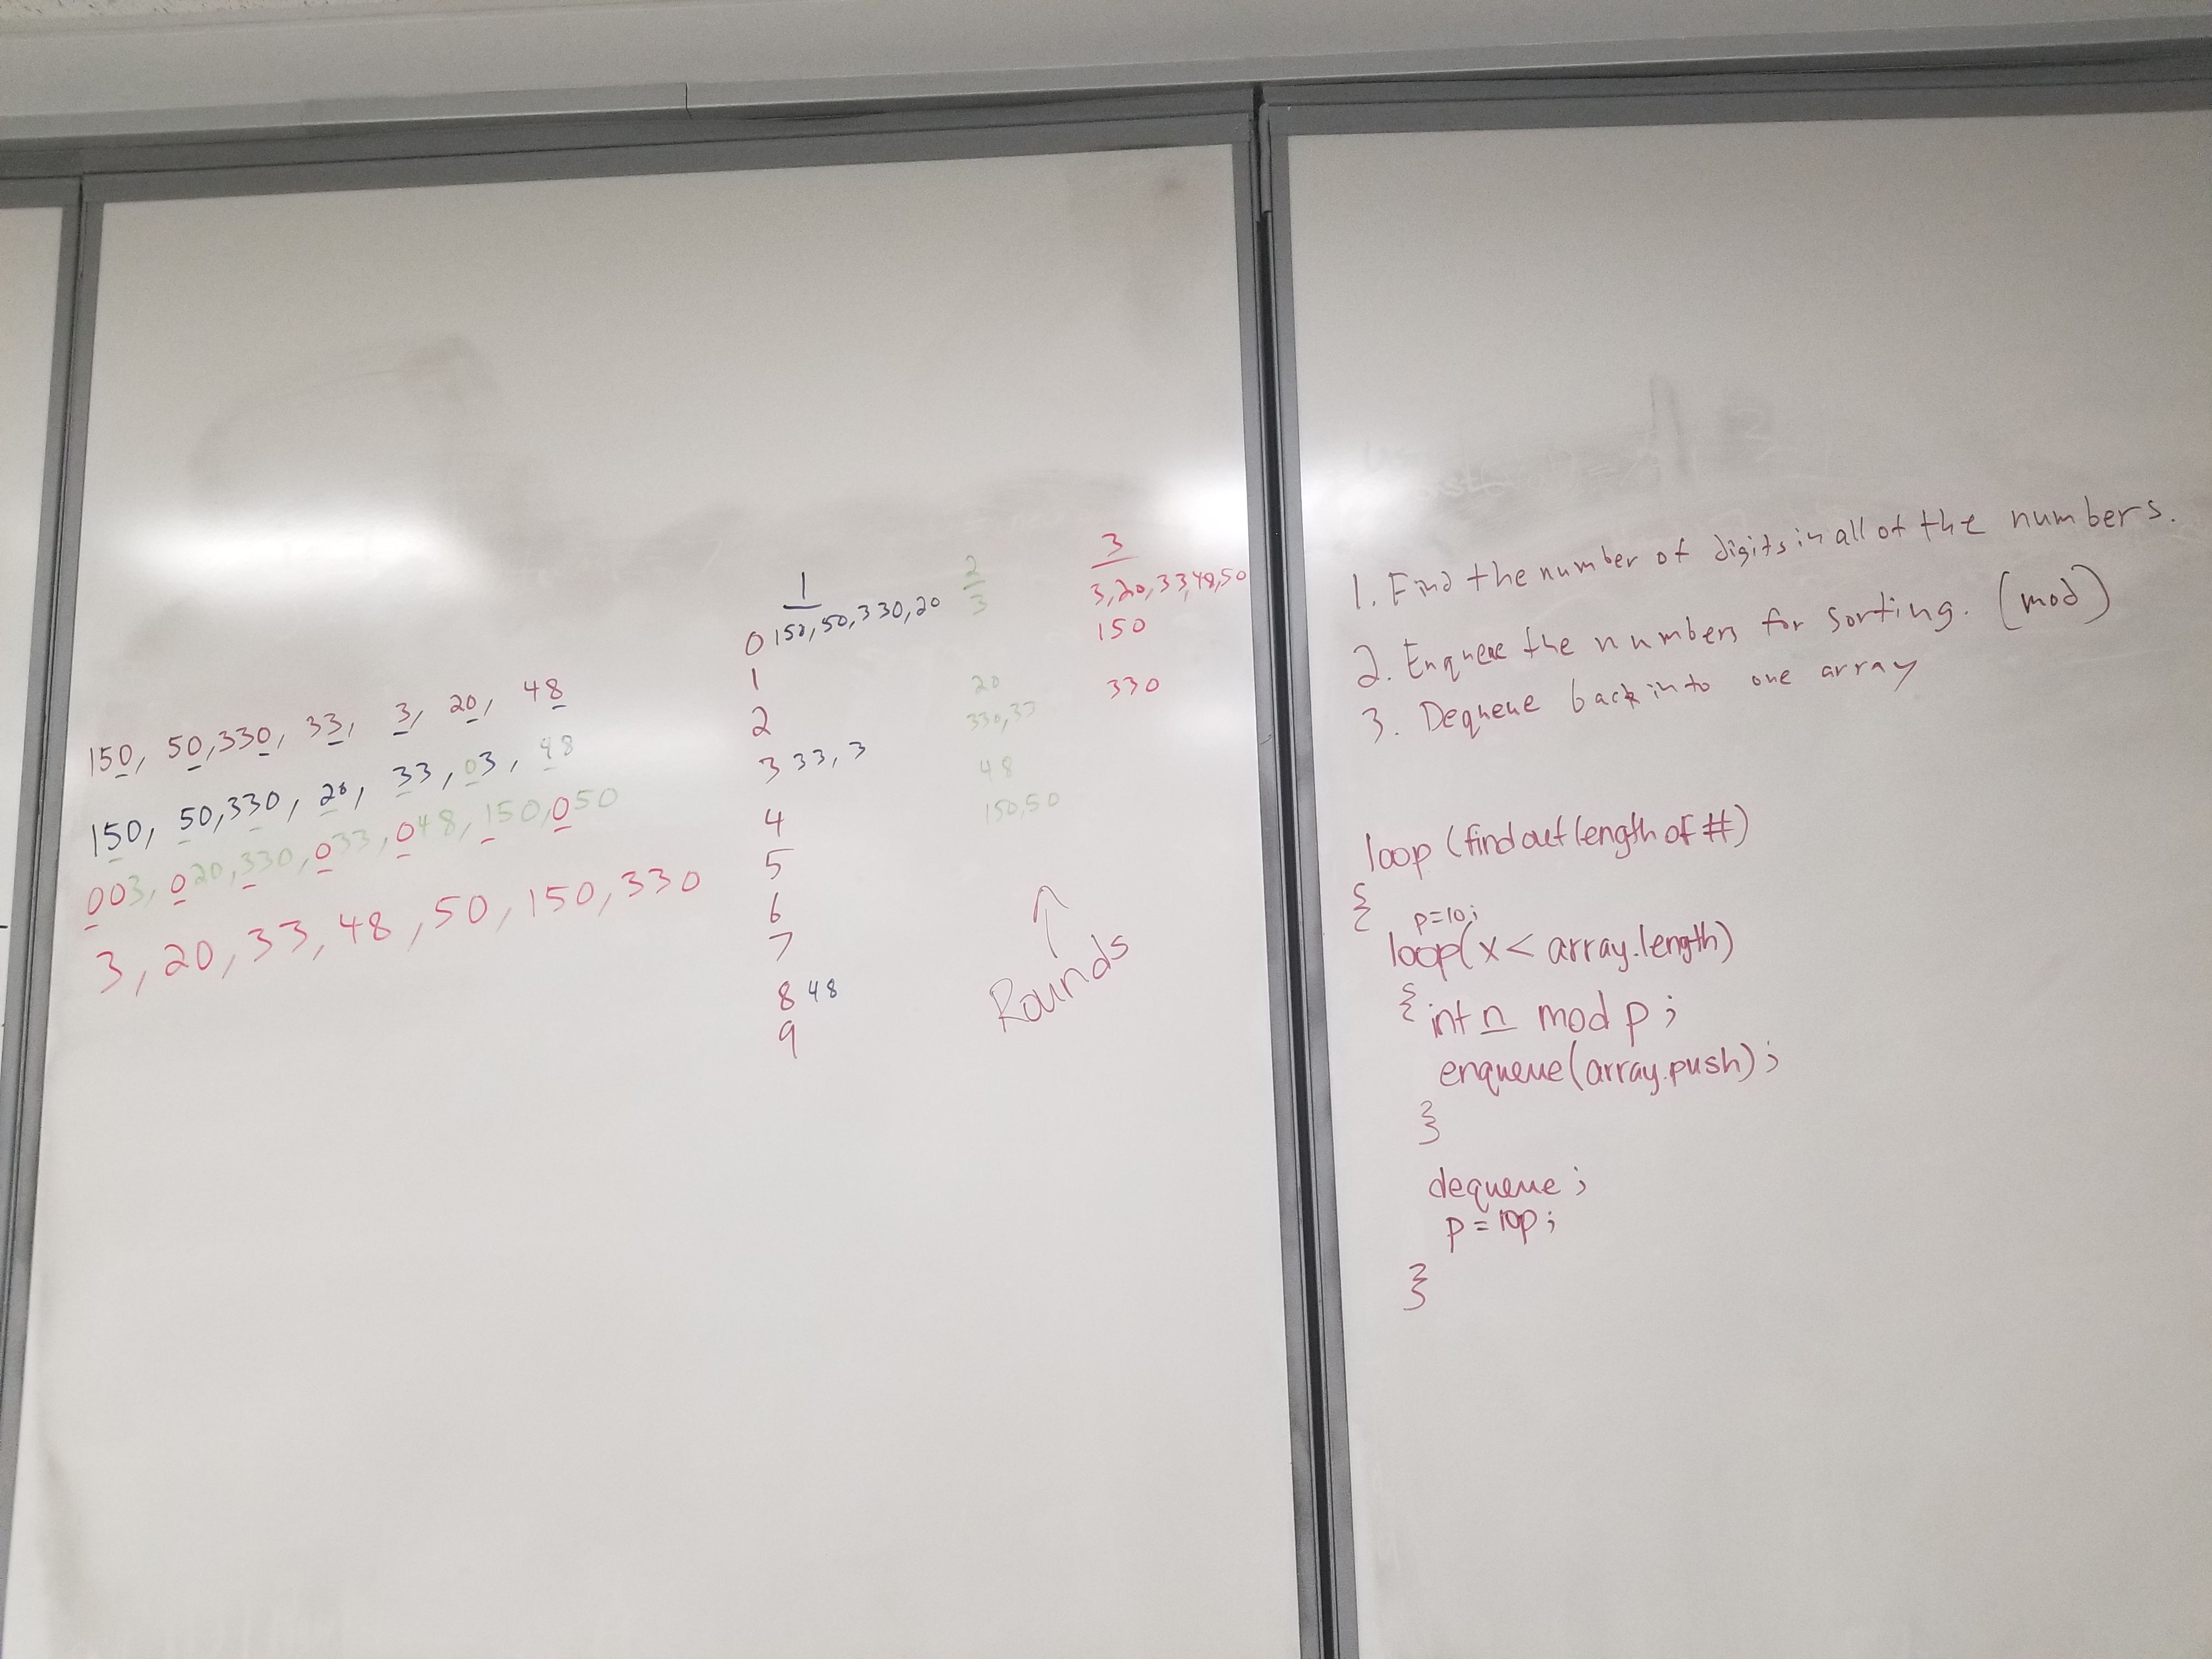 150, 50, 330, 33, 3, 20, 48
150, 50, 330, 20, 33, 03, 48
003, 020, 330, 033, 048, 150, 050
3, 20, 33, 48, 50, 150, 330
1
0 150, 50, 330, 20
1
2
3 33, 3
4
5
6
7
8 48
9
2
3
20
330, 33
48
150, 50
3
3, 20, 33, 48, 50
150
330
Rounds
1. Find the number of digits in all of the numbers.
2. Enqueue the numbers for sorting. (mod)
3. Dequeue back into one array
loop (find out length of #)
{
p=10;
loop(x < array.length)
{ int n mod p;
enqueue(array.push);
}
dequeue;
p = 10p;
}